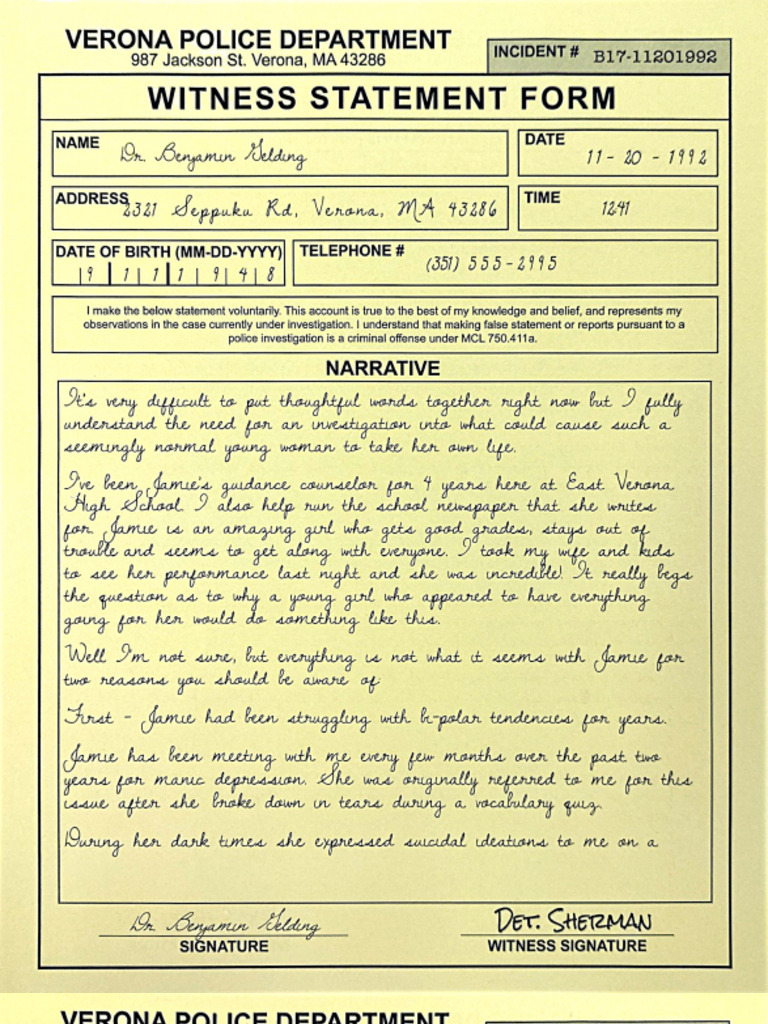 VERONA POLICE DEPARTMENT
987 Jackson St. Verona, MA 43286
INCIDENT # B17-11201992
WITNESS STATEMENT FORM
NAME Dr. Benjamin Gelding
DATE 11-20-1992
ADDRESS 2321 Seppuku Rd, Verona, MA 43286
TIME 1241
DATE OF BIRTH (MM-DD-YYYY) 9 1 1 1 9 4 8
TELEPHONE # (351) 555-2995
I make the below statement voluntarily. This account is true to the best of my knowledge and belief, and represents my
observations in the case currently under investigation. I understand that making false statement or reports pursuant to a
police investigation is a criminal offense under MCL 750.411a.
NARRATIVE
It's very difficult to put thoughtful words together right now but I fully
understand the need for an investigation into what could cause such a
seemingly normal young woman to take her own life.
I've been Jamie's guidance counselor for 4 years here at East Verona
High School. I also help run the school newspaper that she writes
for. Jamie is an amazing girl who gets good grades, stays out of
trouble and seems to get along with everyone. I took my wife and kids
to see her performance last night and she was incredible! It really begs
the question as to why a young girl who appeared to have everything
going for her would do something like this.
Well I'm not sure, but everything is not what it seems with Jamie for
two reasons you should be aware of:
First - Jamie had been struggling with bi-polar tendencies for years.
Jamie has been meeting with me every few months over the past two
years for manic depression. She was originally referred to me for this
issue after she broke down in tears during a vocabulary quiz.
During her dark times she expressed suicidal ideations to me on a
Dr. Benjamin Gelding
SIGNATURE
DET. SHERMAN
WITNESS SIGNATURE
VERONA POLICE DEPARTMENT